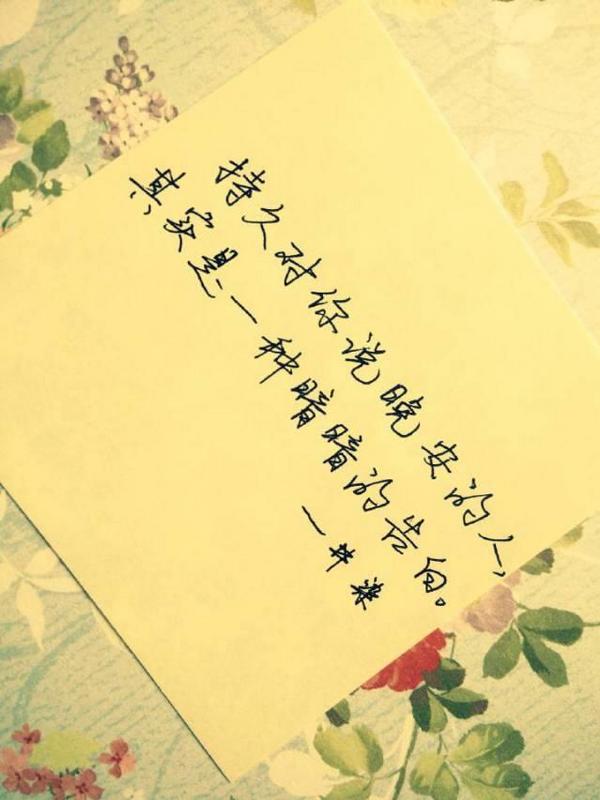 持久对你说晚安的人,
其实是一种暗暗的告白。
一井染